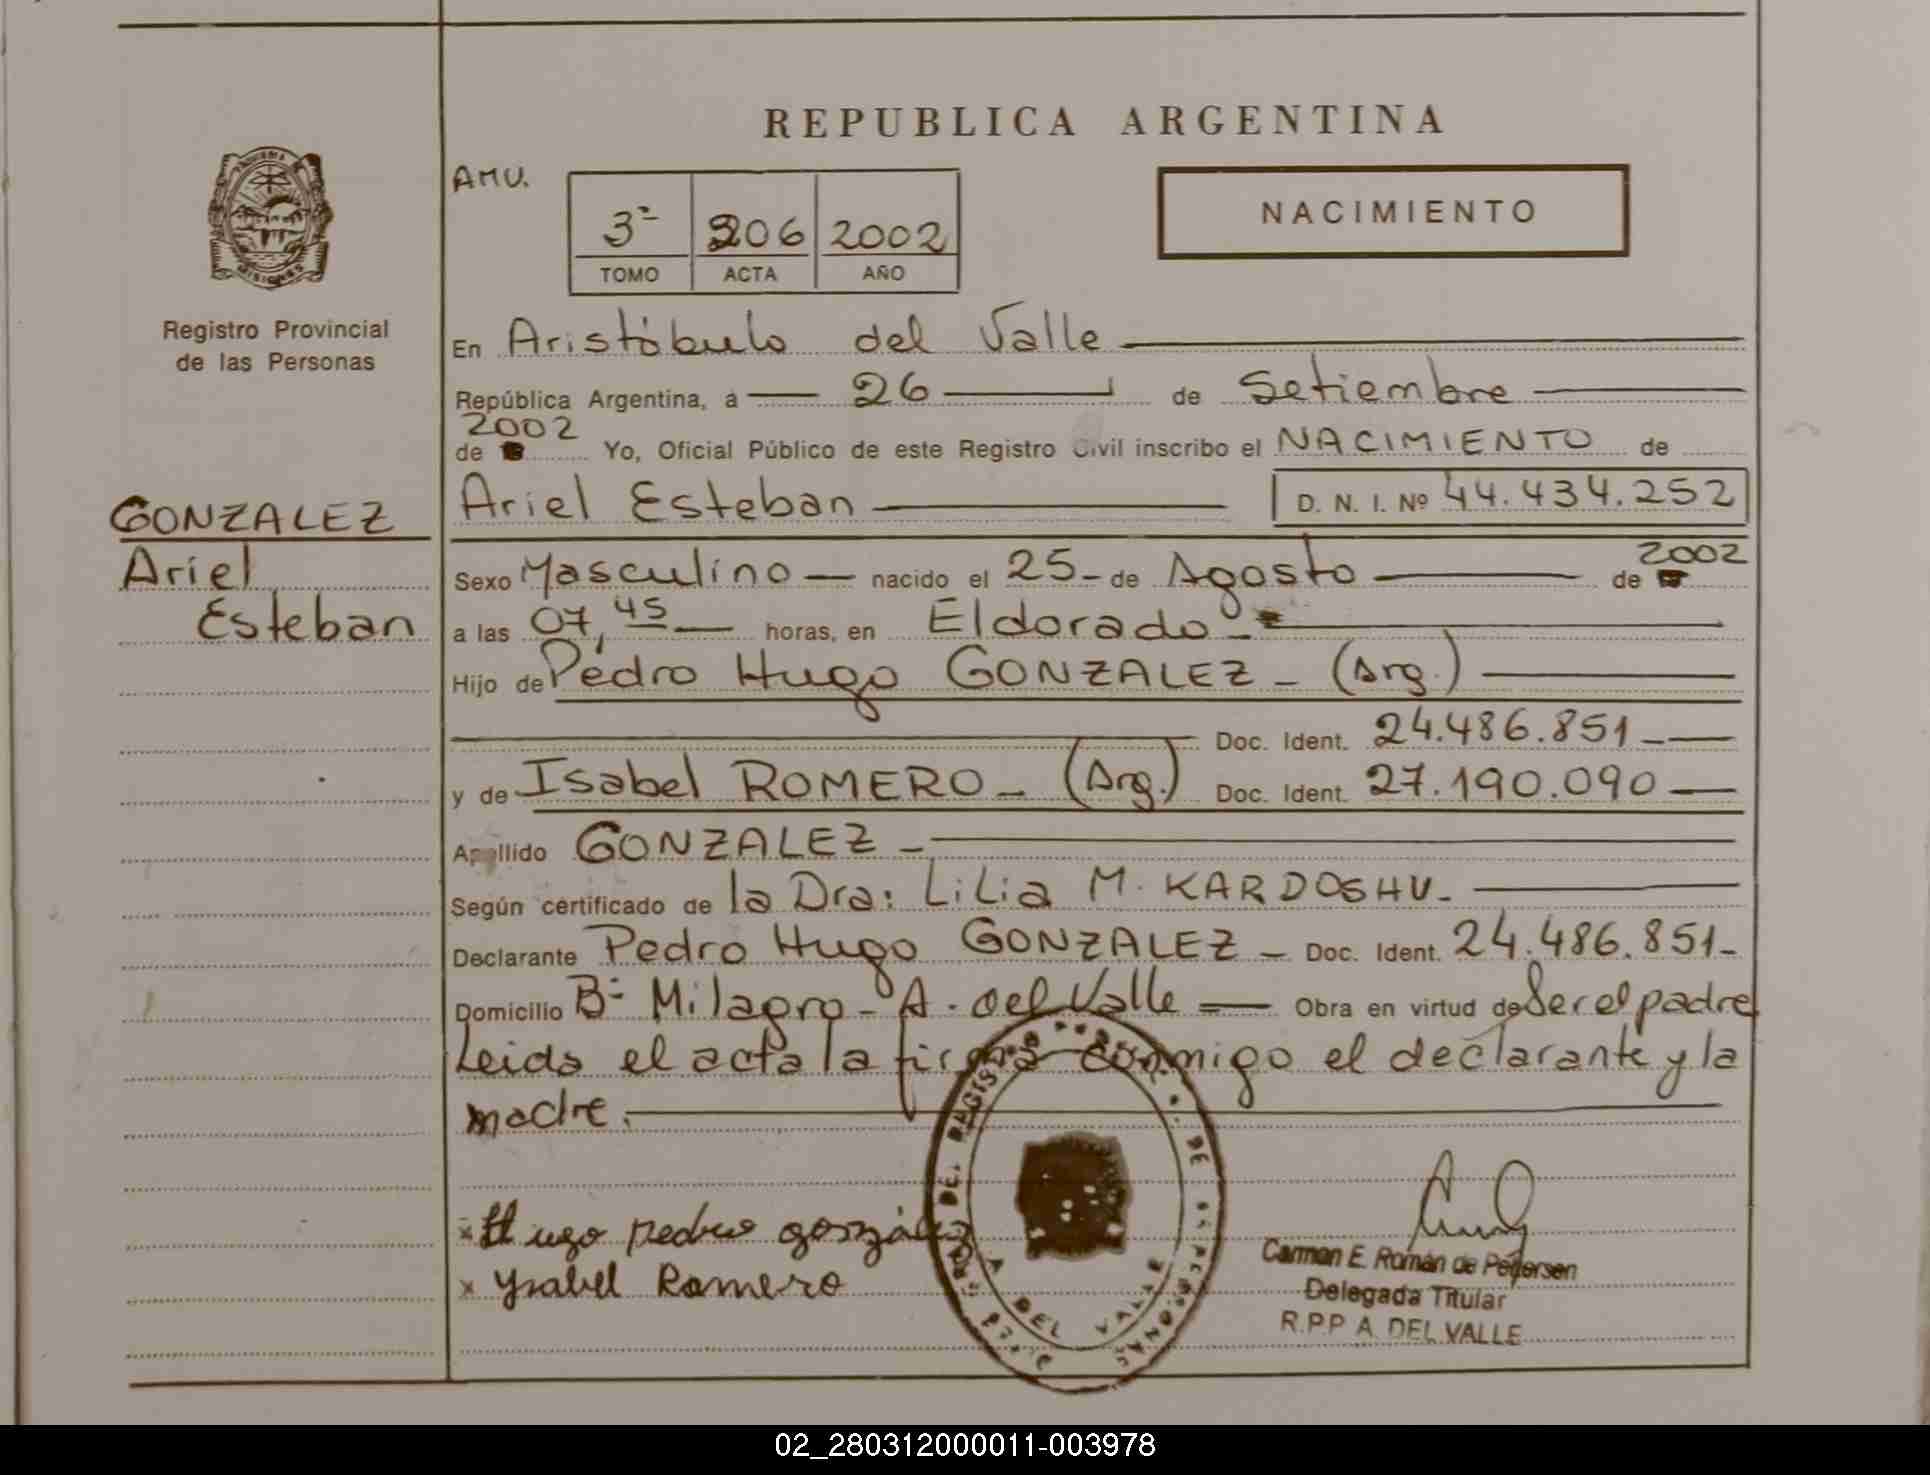 REPUBLICA ARGENTINA
AMU.
3º 206 2002
TOMO ACTA AÑO
NACIMIENTO
MISIONES
Registro Provincial
de las Personas
En Aristóbulo del Valle
República Argentina, a 26 de Setiembre
2002
de Yo, Oficial Público de este Registro Civil inscribo el NACIMIENTO de
GONZALEZ
Ariel
Esteban
Ariel Esteban D. N. I. Nº 44.434.252
Sexo Masculino nacido el 25 - de Agosto de 2002
a las 07,45 horas, en Eldorado -
Hijo de Pedro Hugo GONZALEZ - (Arg.)
Doc. Ident. 24.486.851 -
y de Isabel ROMERO - (Arg.) Doc. Ident. 27.190.090
Apellido GONZALEZ -
Según certificado de la Dra: Lilia M. KARDOSHU. -
Declarante Pedro Hugo GONZALEZ - Doc. Ident. 24.486.851 -
Domicilio Bº Milagro - A. del Valle = Obra en virtud de Ser el padre
Leida el acta la firma conmigo el declarante y la
madre.
x Hugo pedro gonzález
x Ysabel Romero
DEL REGISTRO DE LAS PERSONAS
A DEL VALLE
Carmen E. Román de Pedersen
Delegada Titular
R.P.P A. DEL VALLE
02_280312000011-003978